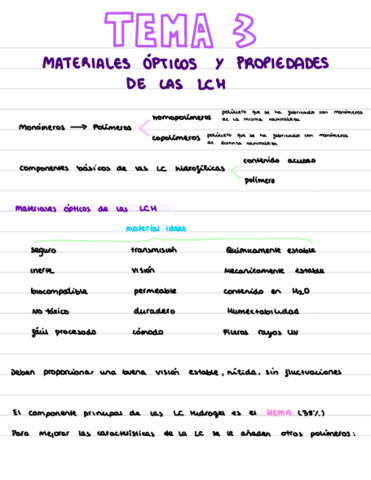 TEMA 3
MATERIALES ÓPTICOS Y PROPIEDADES
DE LAS LCH
Monómeros → Polímeros
homopolímeros
polímero que se ha fabricado con monómeros
de la misma naturaleza
copolímeros
polímero que se ha fabricado con monómeros
de distinta naturaleza
Componentes básicos de las LC hidrofílicas
contenido acuoso
polímero
Materiales ópticos de las LCH
material ideal
seguro transmisión Químicamente estable
inerte visión Mecanicamente estable
biocompatible permeable contenido en H2O
No tóxico duradero Humectabilidad
fácil procesado cómodo Filtros rayos UV
Deben proporcionar una buena visión estable, nítida, sin fluctuaciones
El componente principal de las LC Hidrogel es el HEMA (38%)
Para mejorar las características de la LC se le añaden otros polímeros: